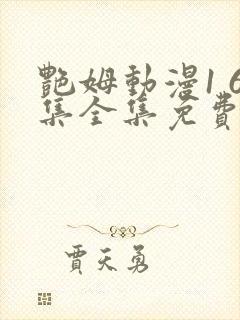 艷姆動漫1 6
集全集免費
賈天勇